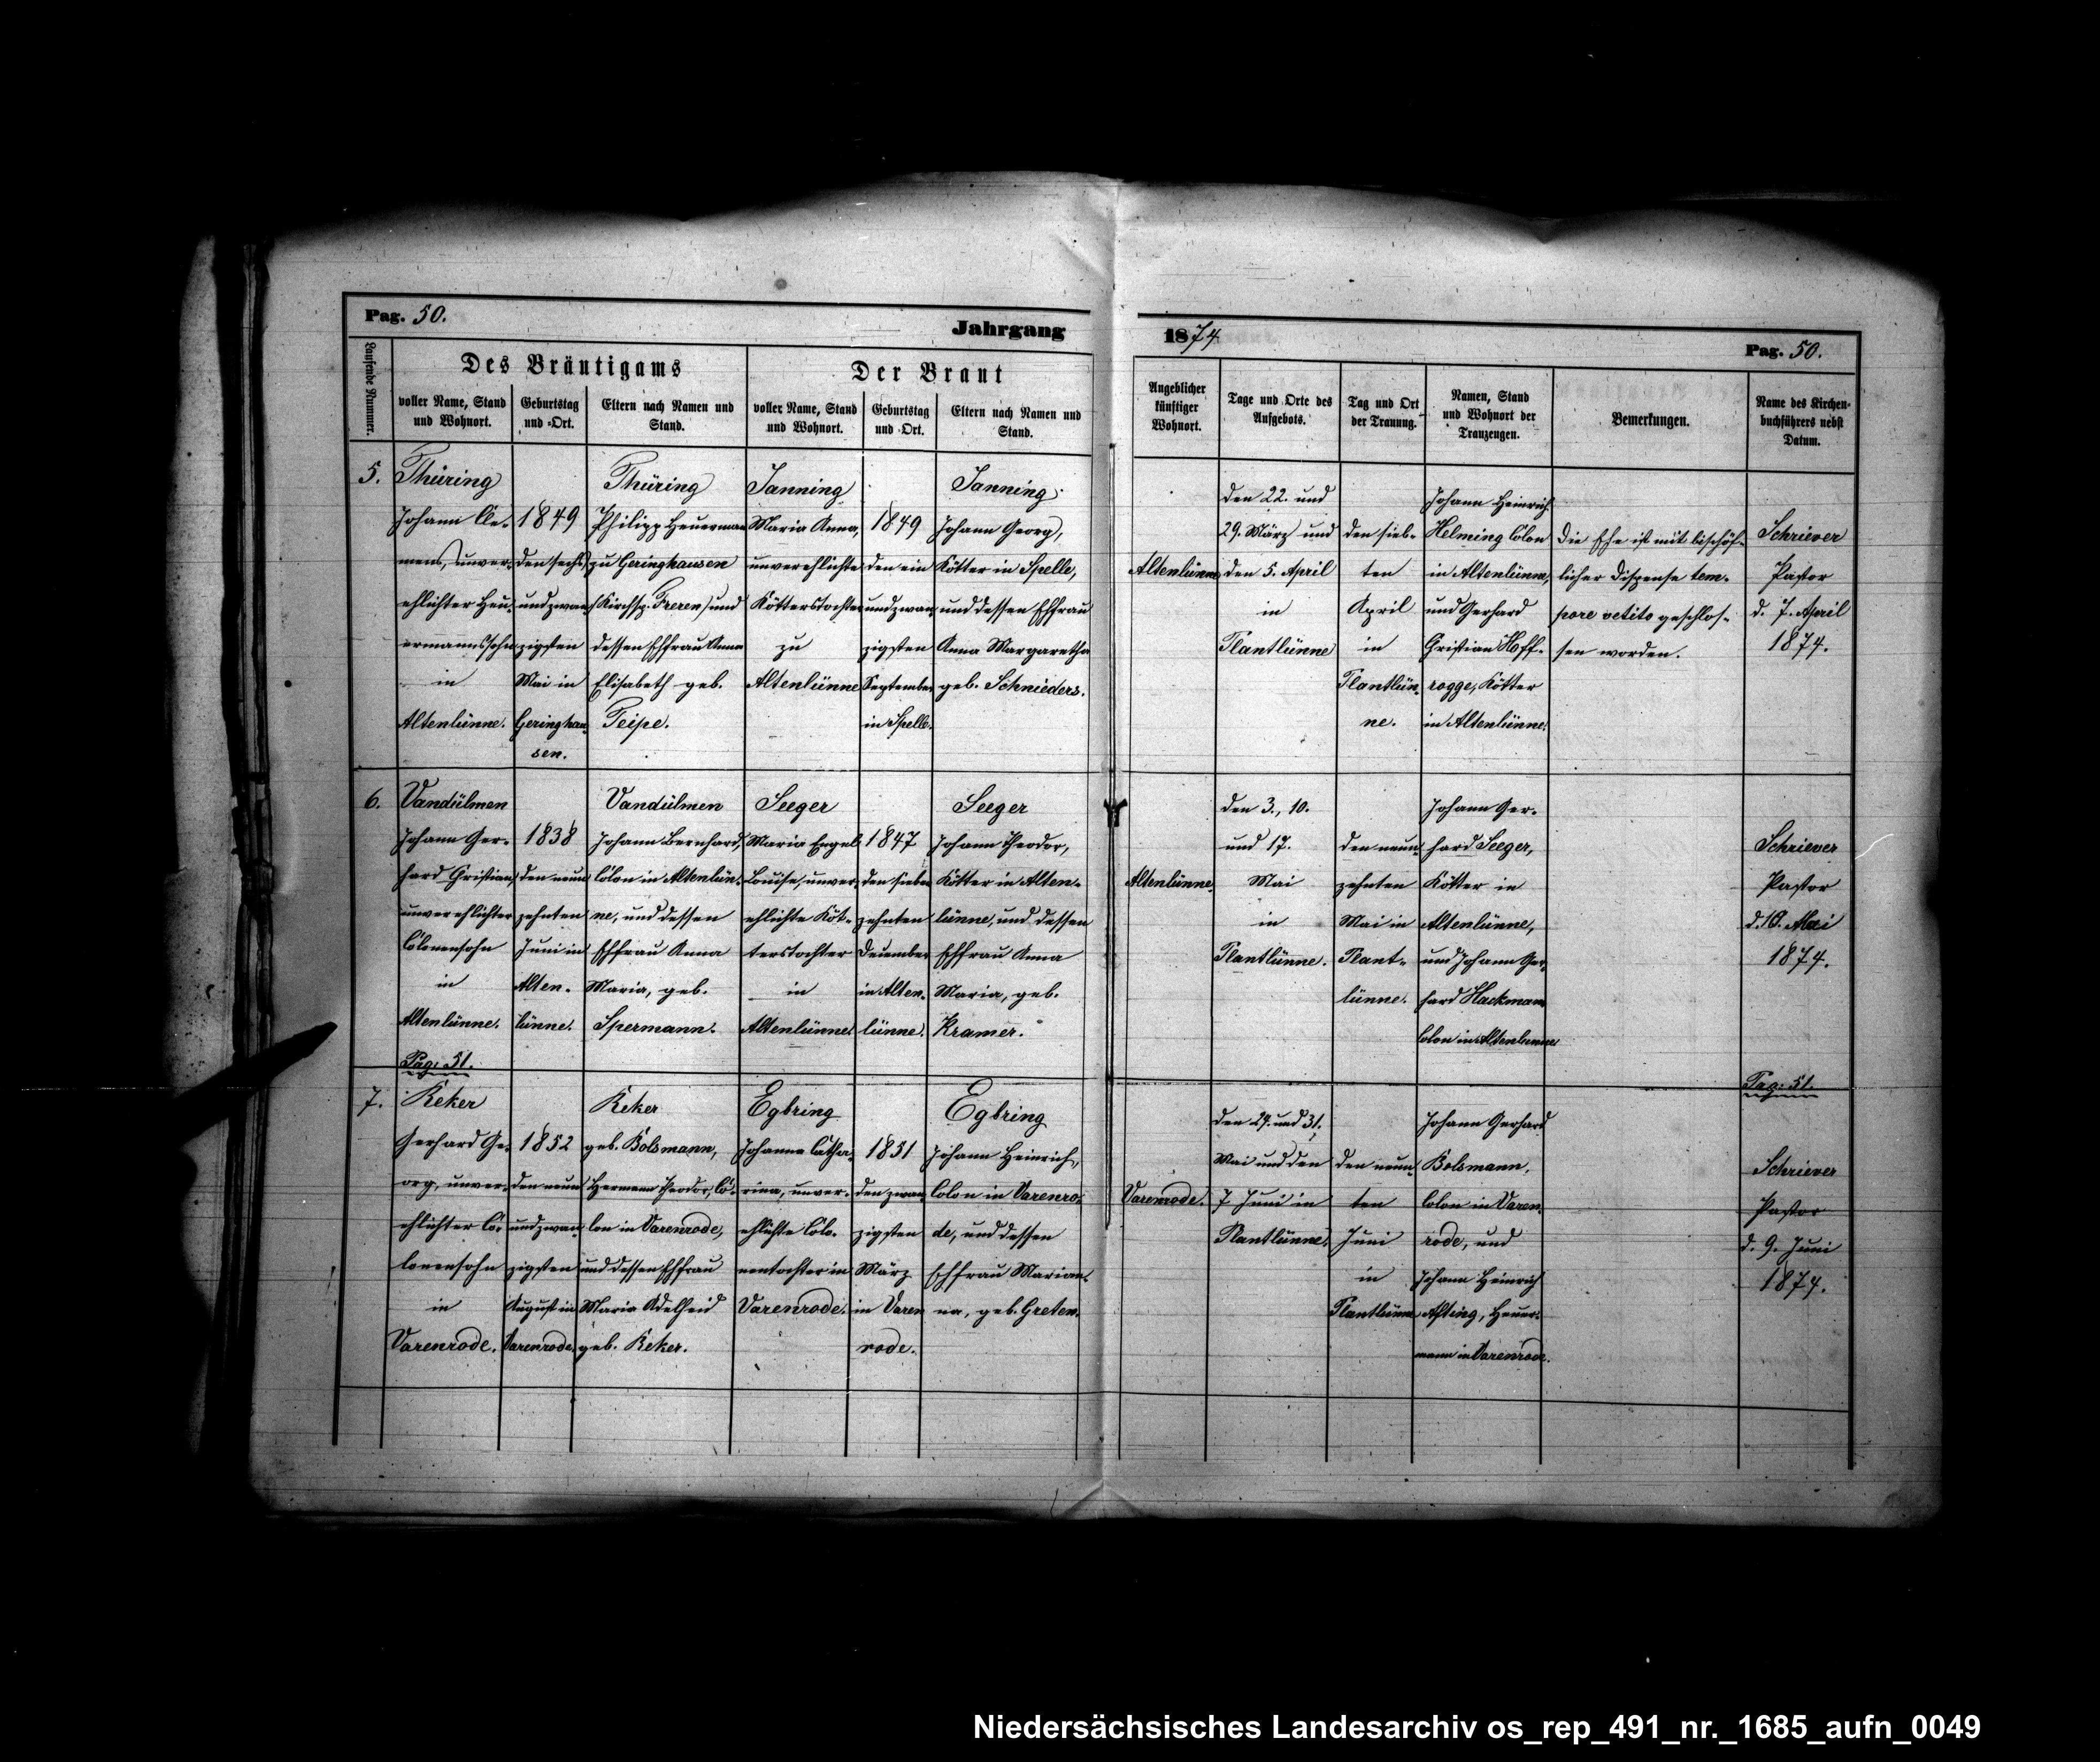 Pag. 50.
Jahrgang
1874
Pag. 50.
Laufende Nummer.
Des Bräutigams
voller Name, Stand
und Wohnort.
Geburtstag
und Ort.
Eltern nach Namen und
Stand.
Der Braut
voller Name, Stand
und Wohnort.
Geburtstag
und Ort.
Eltern nach Namen und
Stand.
Angeblicher
künftiger
Wohnort.
Tage und Orte des
Aufgebots.
Tag und Ort
der Trauung.
Namen, Stand
und Wohnort der
Trauzeugen.
Bemerkungen.
Name des Kirchen-
buchführers nebst
Datum.
5.
Thüring
Johann Cle-
mens, unver-
ehlichter Heu-
ermannssohn
in
Altenlünne.
1849
den sechs
und zwan
zigsten
Mai in
Geringhau-
sen.
Thüring
Philipp Heuermann
zu Geringhausen
(Kirchsp. Freren) und
dessen Ehefrau Anna
Elisabeth geb.
Teipe.
Janning
Maria Anna,
unverehlichte
Kötterstochter
zu
Altenlünne
1849
den ein
und zwan
zigsten
September
in Spelle.
Janning
Johann Georg,
Kötter in Spelle,
und dessen Ehefrau
Anna Margaretha
geb. Schnieders.
Altenlünne
den 22. und
29. März und
den 5. April
in
Plantlünne
den sieb-
ten
April
in
Plantlün-
ne.
Johann Heinrich
Helming Colon
in Altenlünne,
und Gerhard
Christian Hoff-
rogge, Kötter
in Altenlünne.
Die Ehe ist mit bischöf-
licher Dispense tem-
pore vetito geschlos-
sen worden.
Schriever
Pastor
d. 7. April
1874.
6.
Vandülmen
Johann Ger-
hard Christian,
unverehlichter
Colonensohn
in
Altenlünne.
1838
den neun
zehnten
Juni in
Alten-
lünne.
Vandülmen
Johann Bernhard,
Colon in Altenlün-
ne, und dessen
Ehefrau Anna
Maria, geb.
Spermann.
Seeger
Maria Engel
Louise, unver-
ehlichte Köt-
terstochter
in
Altenlünne.
1847
den sieben
zehnten
December
in Alten-
lünne.
Seeger
Johann Theodor,
Kötter in Alten-
lünne, und dessen
Ehefrau Anna
Maria, geb.
Kramer.
Altenlünne.
den 3., 10.
und 17.
Mai
in
Plantlünne.
den neun
zehnten
Mai in
Plant-
lünne.
Johann Ger-
hard Seeger,
Kötter in
Altenlünne,
und Johann Ger-
hard Hackmann
Colon in Altenlünne
Schriever
Pastor
Mai
1874.
Pag. 51.
Pag. 51.
7.
Keker
Gerhard Ge-
org, unver-
ehlichter Co-
lonensohn
in
Varenrode.
1852
den neun
und zwan
zigsten
August in
Varenrode.
Keker
geb. Bolsmann,
Hermann Theodor, Co-
lon in Varenrode,
und dessen Ehefrau
Maria Adelheid
geb. Keker.
Egbring
Johanna Catha-
rina, unver-
ehlichte Colo-
nentochter in
Varenrode.
1851
den zwan
zigsten
März
in Varen
rode.
Egbring
Johann Heinrich,
Colon in Varenro-
de, und dessen
Ehefrau Marian-
na, geb. Greten.
Varenrode.
den 24. und 31.
Mai und den
7 Juni in
Plantlünne.
den neun
ten
Juni
in
Plantlünne
Johann Gerhard
Bolsmann,
Colon in Varen-
rode, und
Johann Heinrich
Heuer-
mann in Varenrode.
Schriever
Pastor
d. 9. Juni
1874.
Niedersächsisches Landesarchiv os_rep_491_nr._1685_aufn_0049